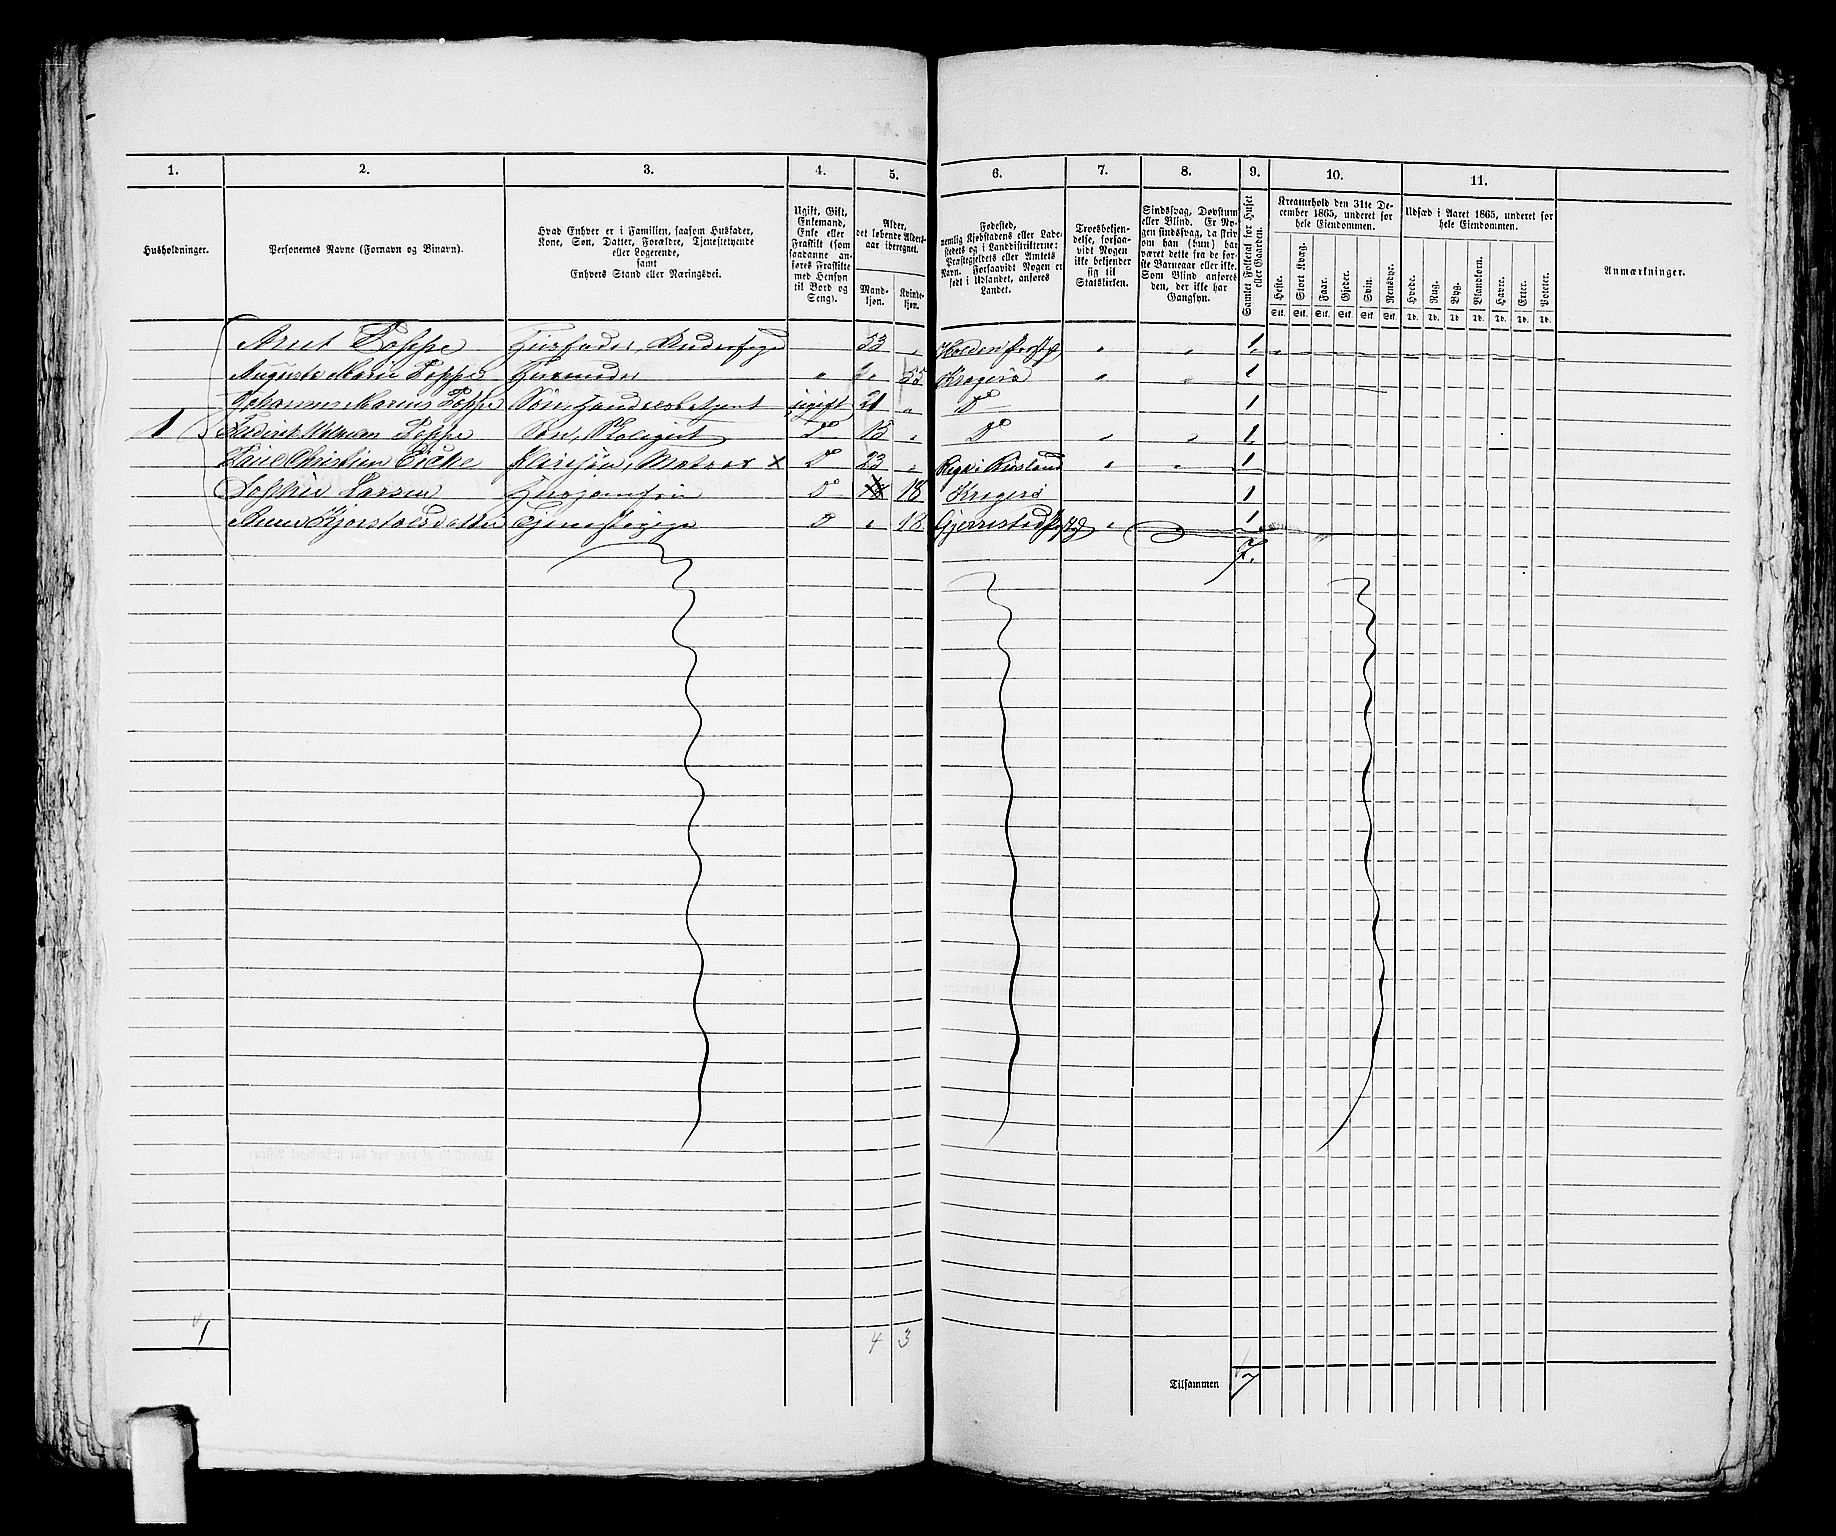 1. 2. 3. 4. 5. 6. 7. 8. 9. 10. 11.
Husholdninger.
Personernes Navne (Fornavn og Binavn).
Hvad Enhver er i Familien, saasom Husfader,
Kone, Søn, Datter, Forældre, Tjenestetyende
eller Logerende,
samt
Enhvers Stand eller Næringsvei.
Ugift, Gift,
Enkemand,
Enke eller
Fraskilt (som
saadanne an-
føres Fraskilte
med Hensyn
til Bord og
Seng).
Alder,
det løbende Alders-
aar iberegnet.
Mand-
kjøn.
Kvinde-
kjøn.
Fødested,
nemlig Kjøbstadens eller Lade-
stedets og i Landdistrikterne:
Præstegjeldets eller Amtets
Navn. Forsaavidt Nogen er
født i Udlandet, anføres
Landet.
Troesbekjen-
delse, forsaa-
vidt Nogen
ikke bekjender
sig til
Statskirken.
Sindssvag, Døvstum
eller Blind. Er No-
gen sindssvag, da skriv
om han (hun) har
været dette fra de før-
ste Barneaar eller ikke.
Som Blind anføres
den, der ikke har
Gangsyn.
Samlet Folketal for Huset
eller Gaarden.
Kreaturhold den 31te De-
cember 1865, underet for
hele Eiendommen.
Heste. Stort Kvæg. Faar. Gjeder. Svin. Rensdyr.
Stk. Stk. Stk. Stk. Stk. Stk.
Udsæd i Aaret 1865, underet for
hele Eiendommen.
Hvede. Rug. Byg. Blandkorn. Havre. Erter. Poteter.
Td. Td. Td. Td. Td. Td. Td.
Anmærkninger.
Arnt Poppe Huusfader 53 " Holden " " 1
Auguste Marie Poppe Huusmoder " " 55 Kragerø " " 1
Johannes Marius Poppe Søn, Handelsbetjent ugift 21 " Do 1
1 Poppe Søn, Do 15 " Do " " 1
Christian Matros x Do 23 " Riga i Rusland " " 1
Sophie Larsen Huusjomfru Do 18 18 Kragerø 1
Tjenestepige D " 18 Gjerrestad " " 1
7.
1 4 3
Tilsammen 7